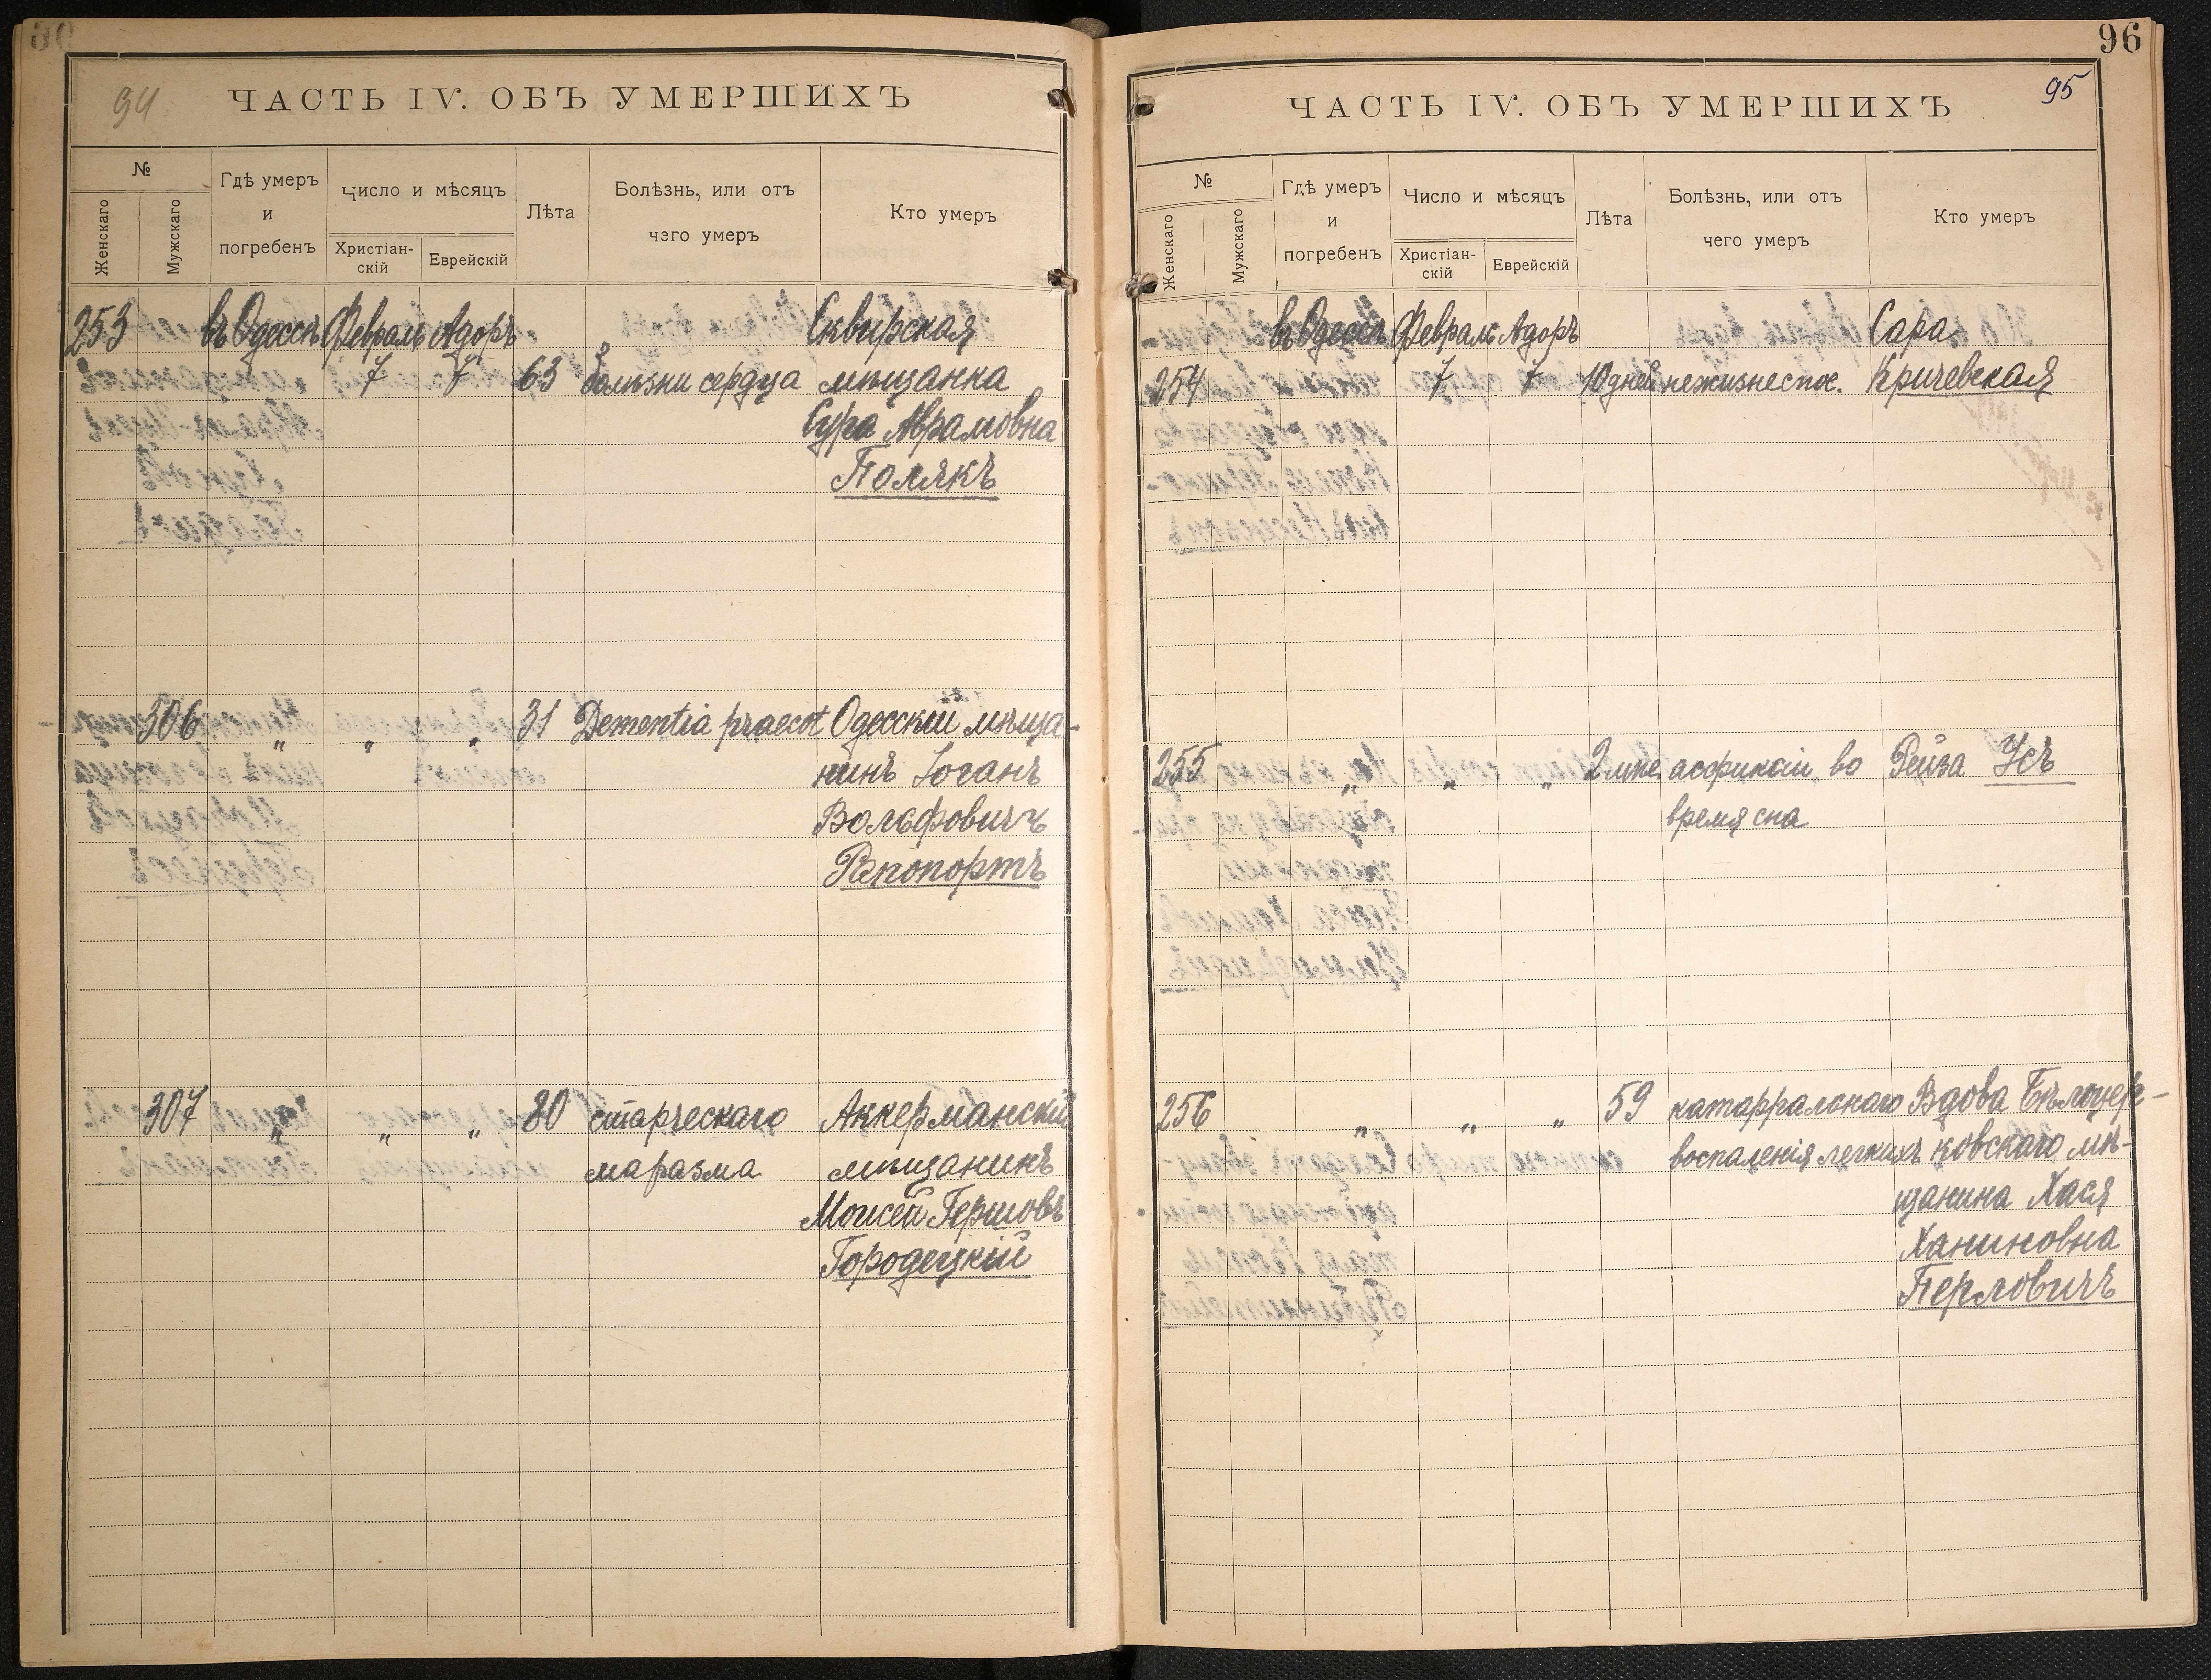 94
ЧАСТЬ IV. ОБЪ УМЕРШИХЪ
№
Женскаго
Мужскаго
Гдѣ умеръ
и
погребенъ
Число и мѣсяцъ
Христіан-
скій
Еврейскій
Лѣта
Болѣзнь, или отъ
чего умеръ
Кто умеръ
253 въ Одессѣ Февраль Адоръ Сквирская
7 7 63 болѣзни сердца мѣщанка
Сура Аврамовна
Полякъ
306 " " " 31 Dementia praecot Одесскій мѣща-
нинъ Іоганъ
Вольфовичъ
Рапопортъ
307 " " " 80 старческаго Аккерманскій
маразма мѣщанинъ
Мойсей Гершовъ
Городецкій
96
95
ЧАСТЬ IV. ОБЪ УМЕРШИХЪ
№
Женскаго
Мужскаго
Гдѣ умеръ
и
погребенъ
Число и мѣсяцъ
Христіан-
скій
Еврейскій
Лѣта
Болѣзнь, или отъ
чего умеръ
Кто умеръ
въ Одессѣ Февраль Адоръ Сара
254 7 7 10 дней нежизнеспос. Кричевская
255 " " " 2 мѣс. асфикціи во Рейза Усъ
время сна
256 " " " 59 катарральнаго Вдова Бѣлоцер-
воспаленія легкихъ ковскаго мѣ-
щанина Хася
Ханиновна
Перловичъ